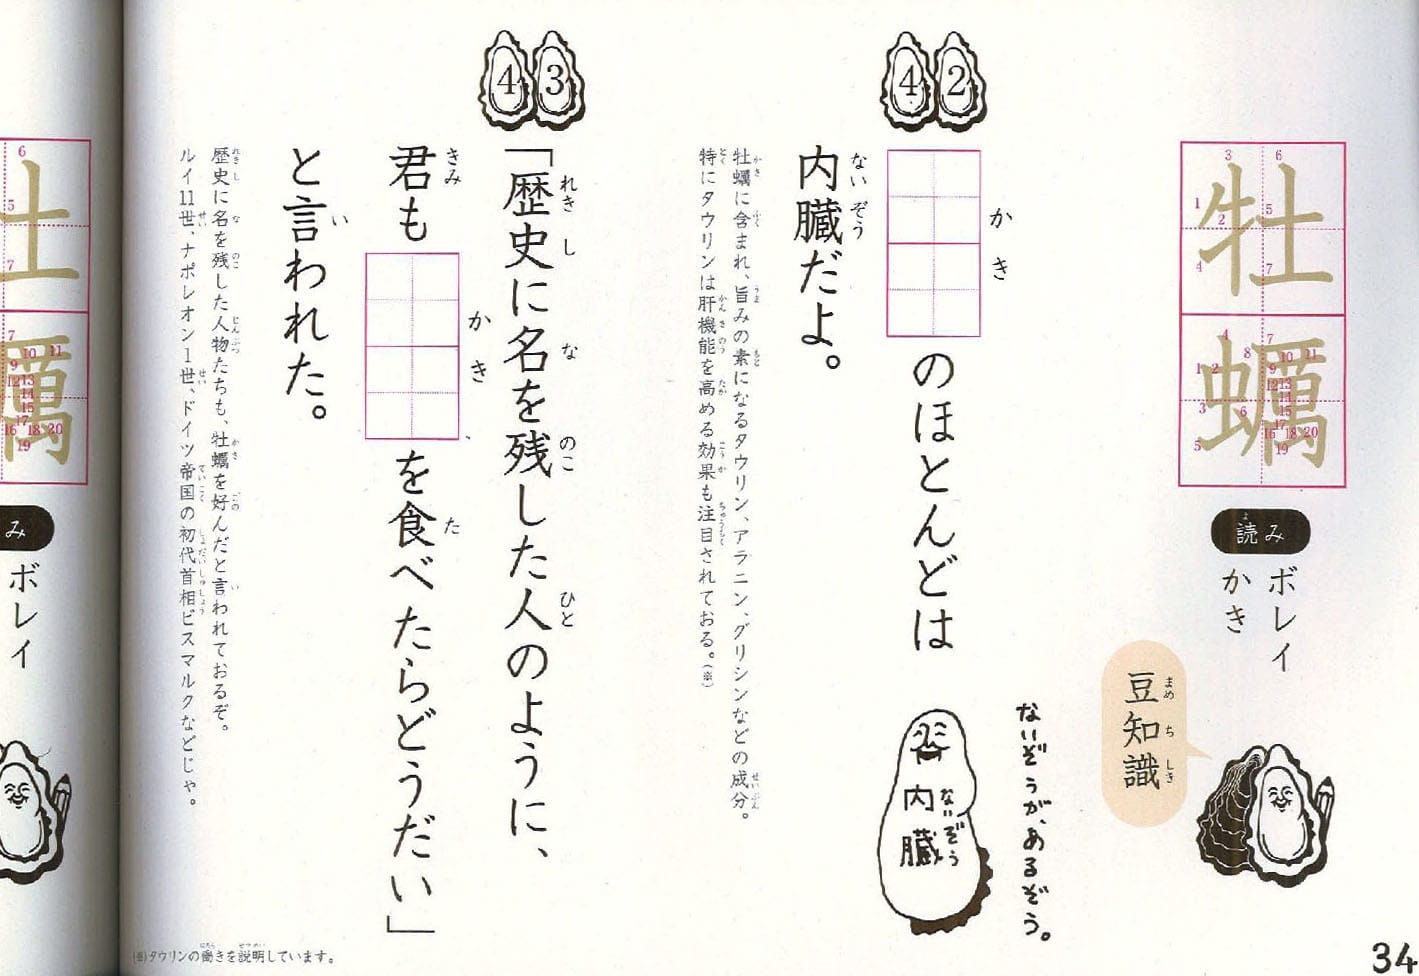 牡蠣
読み
ボレイ
かき
豆知識
42
かき
のほとんどは
内臓だよ。
ないぞうが、あるぞう。
内臓
ないぞう
牡蠣に含まれ、旨みの素になるタウリン、アラニン、グリシンなどの成分。
特にタウリンは肝機能を高める効果も注目されておる。(※)
43
「歴史に名を残した人のように、
君も かき を食べたらどうだい」
と言われた。
歴史に名を残した人物たちも、牡蠣を好んだと言われておるぞ。
ルイ11世、ナポレオン1世、ドイツ帝国の初代首相ビスマルクなどじゃ。
(※)タウリンの働きを説明しています。
34
み
ボレイ